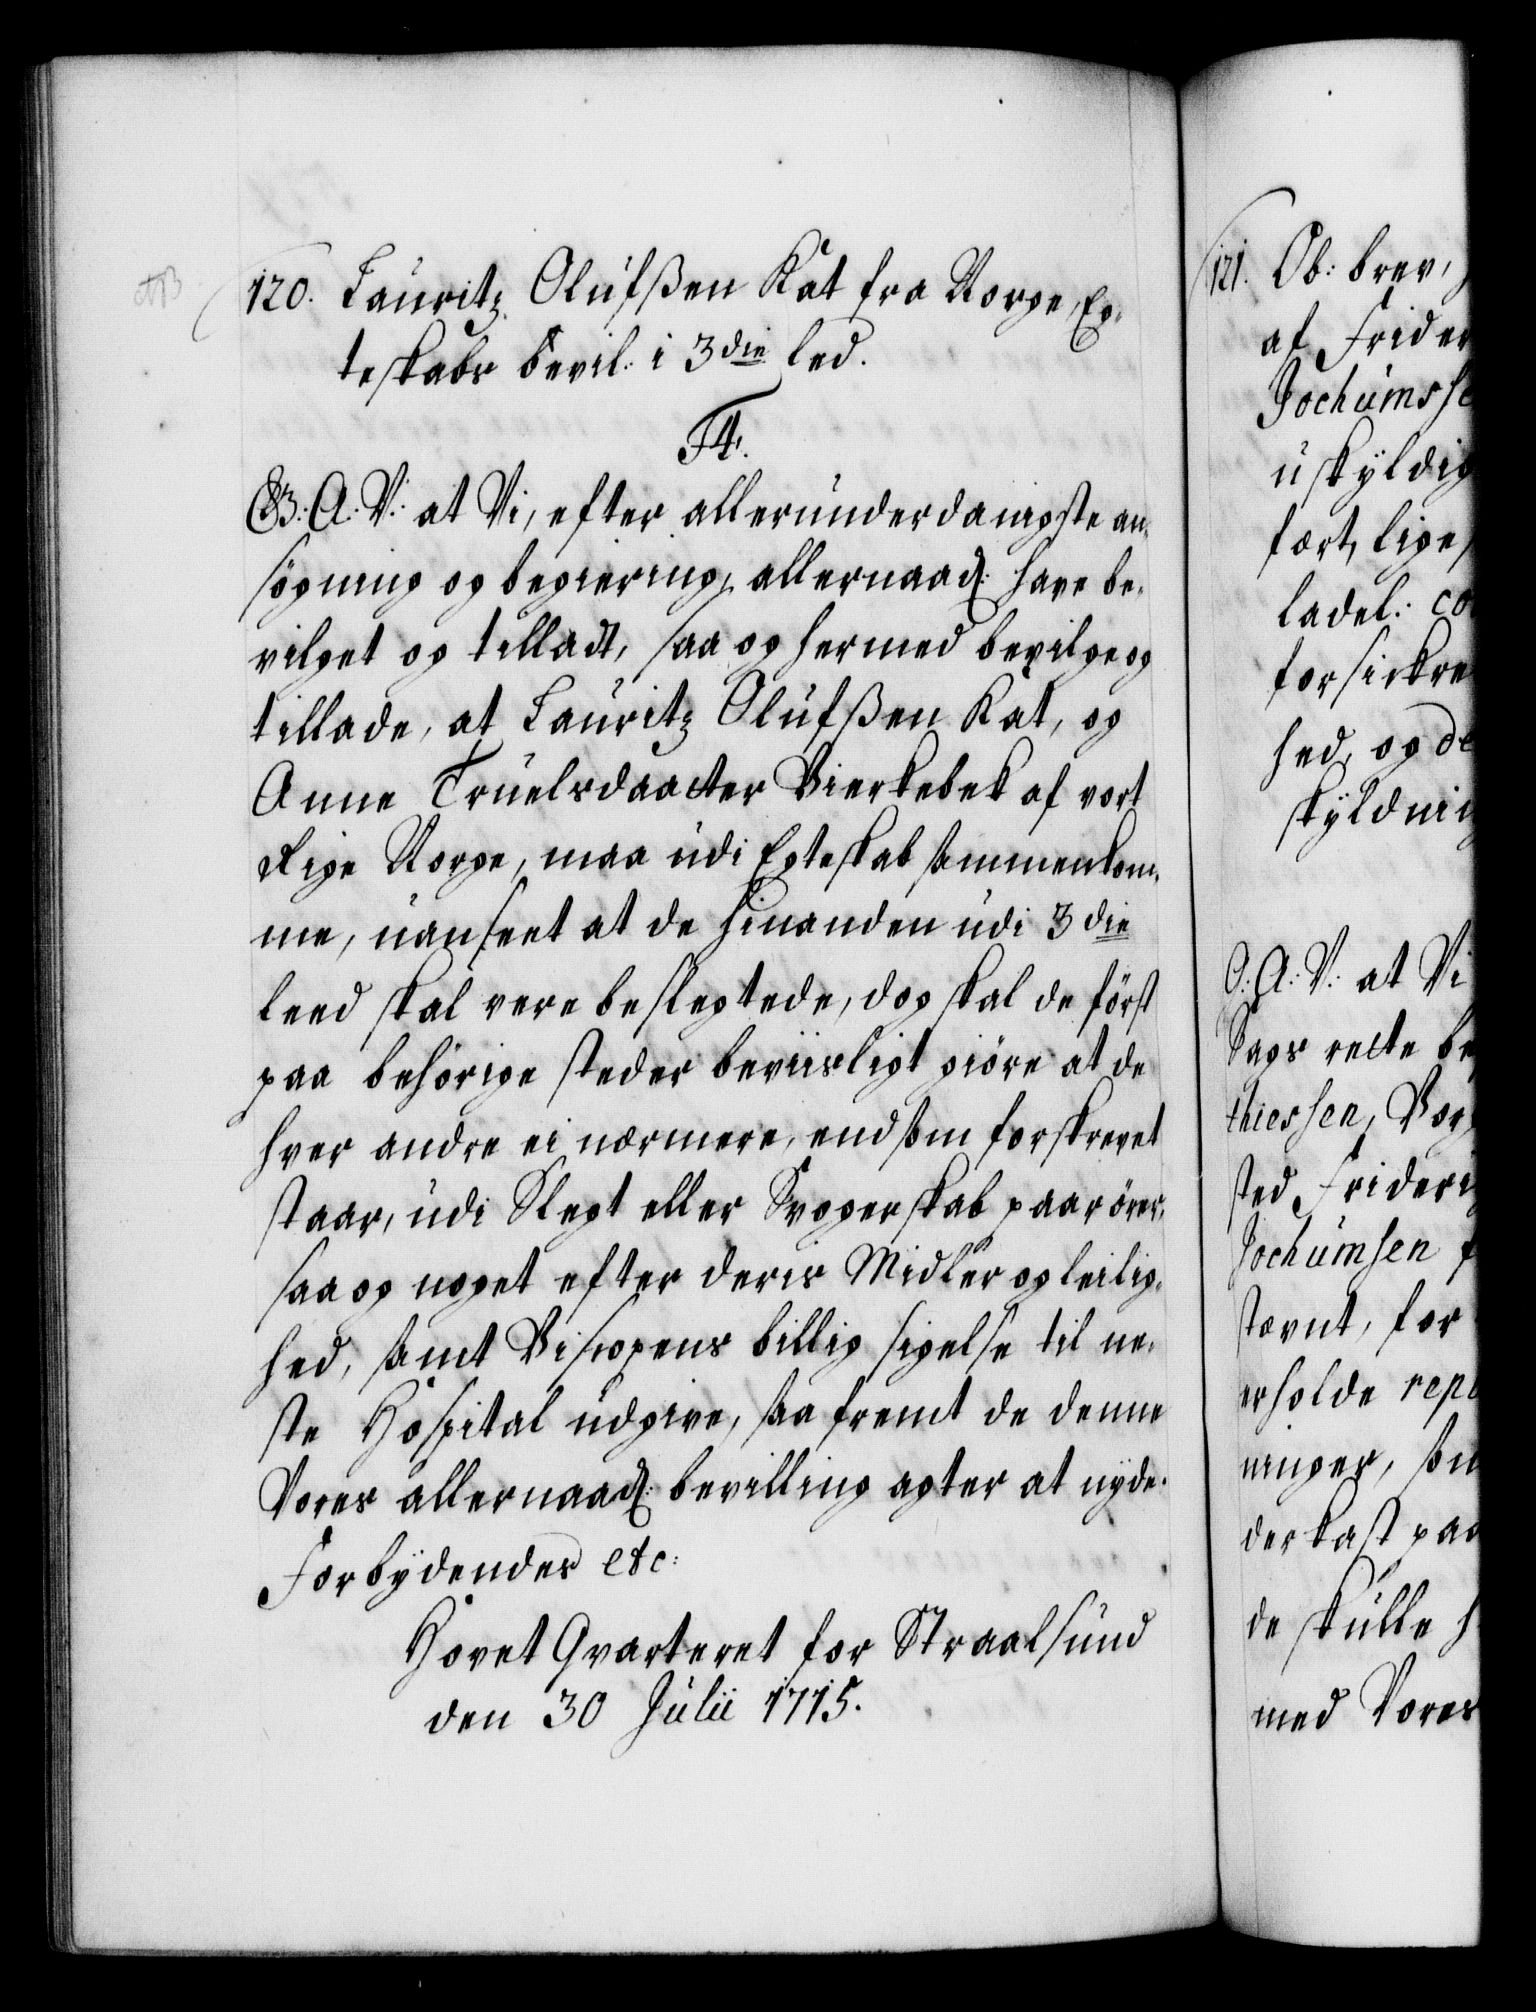 120. Lauritz Olufßen Kat fra Norge, Eg-
teskabs bevil: i 3die led.
F4.
G: A: V: at Vi, efter allerunderdanigste an-
søgning og begiering, allernaad: have be-
vilget og tilladt, saa og hermed bevilge og
tillade, at Lauritz Olufßen Kat, og
Anne Truelsdaatter Bierkebek af vort
Rige Norge, maa udi Egteskab sammenkom-
me, uanseet at de hinanden udi 3die
leed skal vere beslegtede, dog skal de först
paa behörige steder beviisligt giöre at de
hver andre ei nærmere, end som forskrevet
staar, udi Slegt eller Svogerskab paarörer,
saa og noget efter deris Midler og leilig-
hed, samt Biscopens billig sigelse til ne-
ste Hospital udgive, saa fremt de denne
Vores allernaad: bevilling agter at nyde.
Forbydendes etc:
Hovet Qvarteret for Straalsund
den 30 Julii 1715.
121. Ob: brev,
af Frider
Jochumsse
uskyldig
fært, lige
ladel: co
forsickre
hed, og de
skyldnin
G: A: V: at Vi
Sags rette be
thiessen, Borg
sted Frideri
Jochumsen f
stævnt, for
erholde repe
ninger, som
derkast paa
de skulle h
med Vores